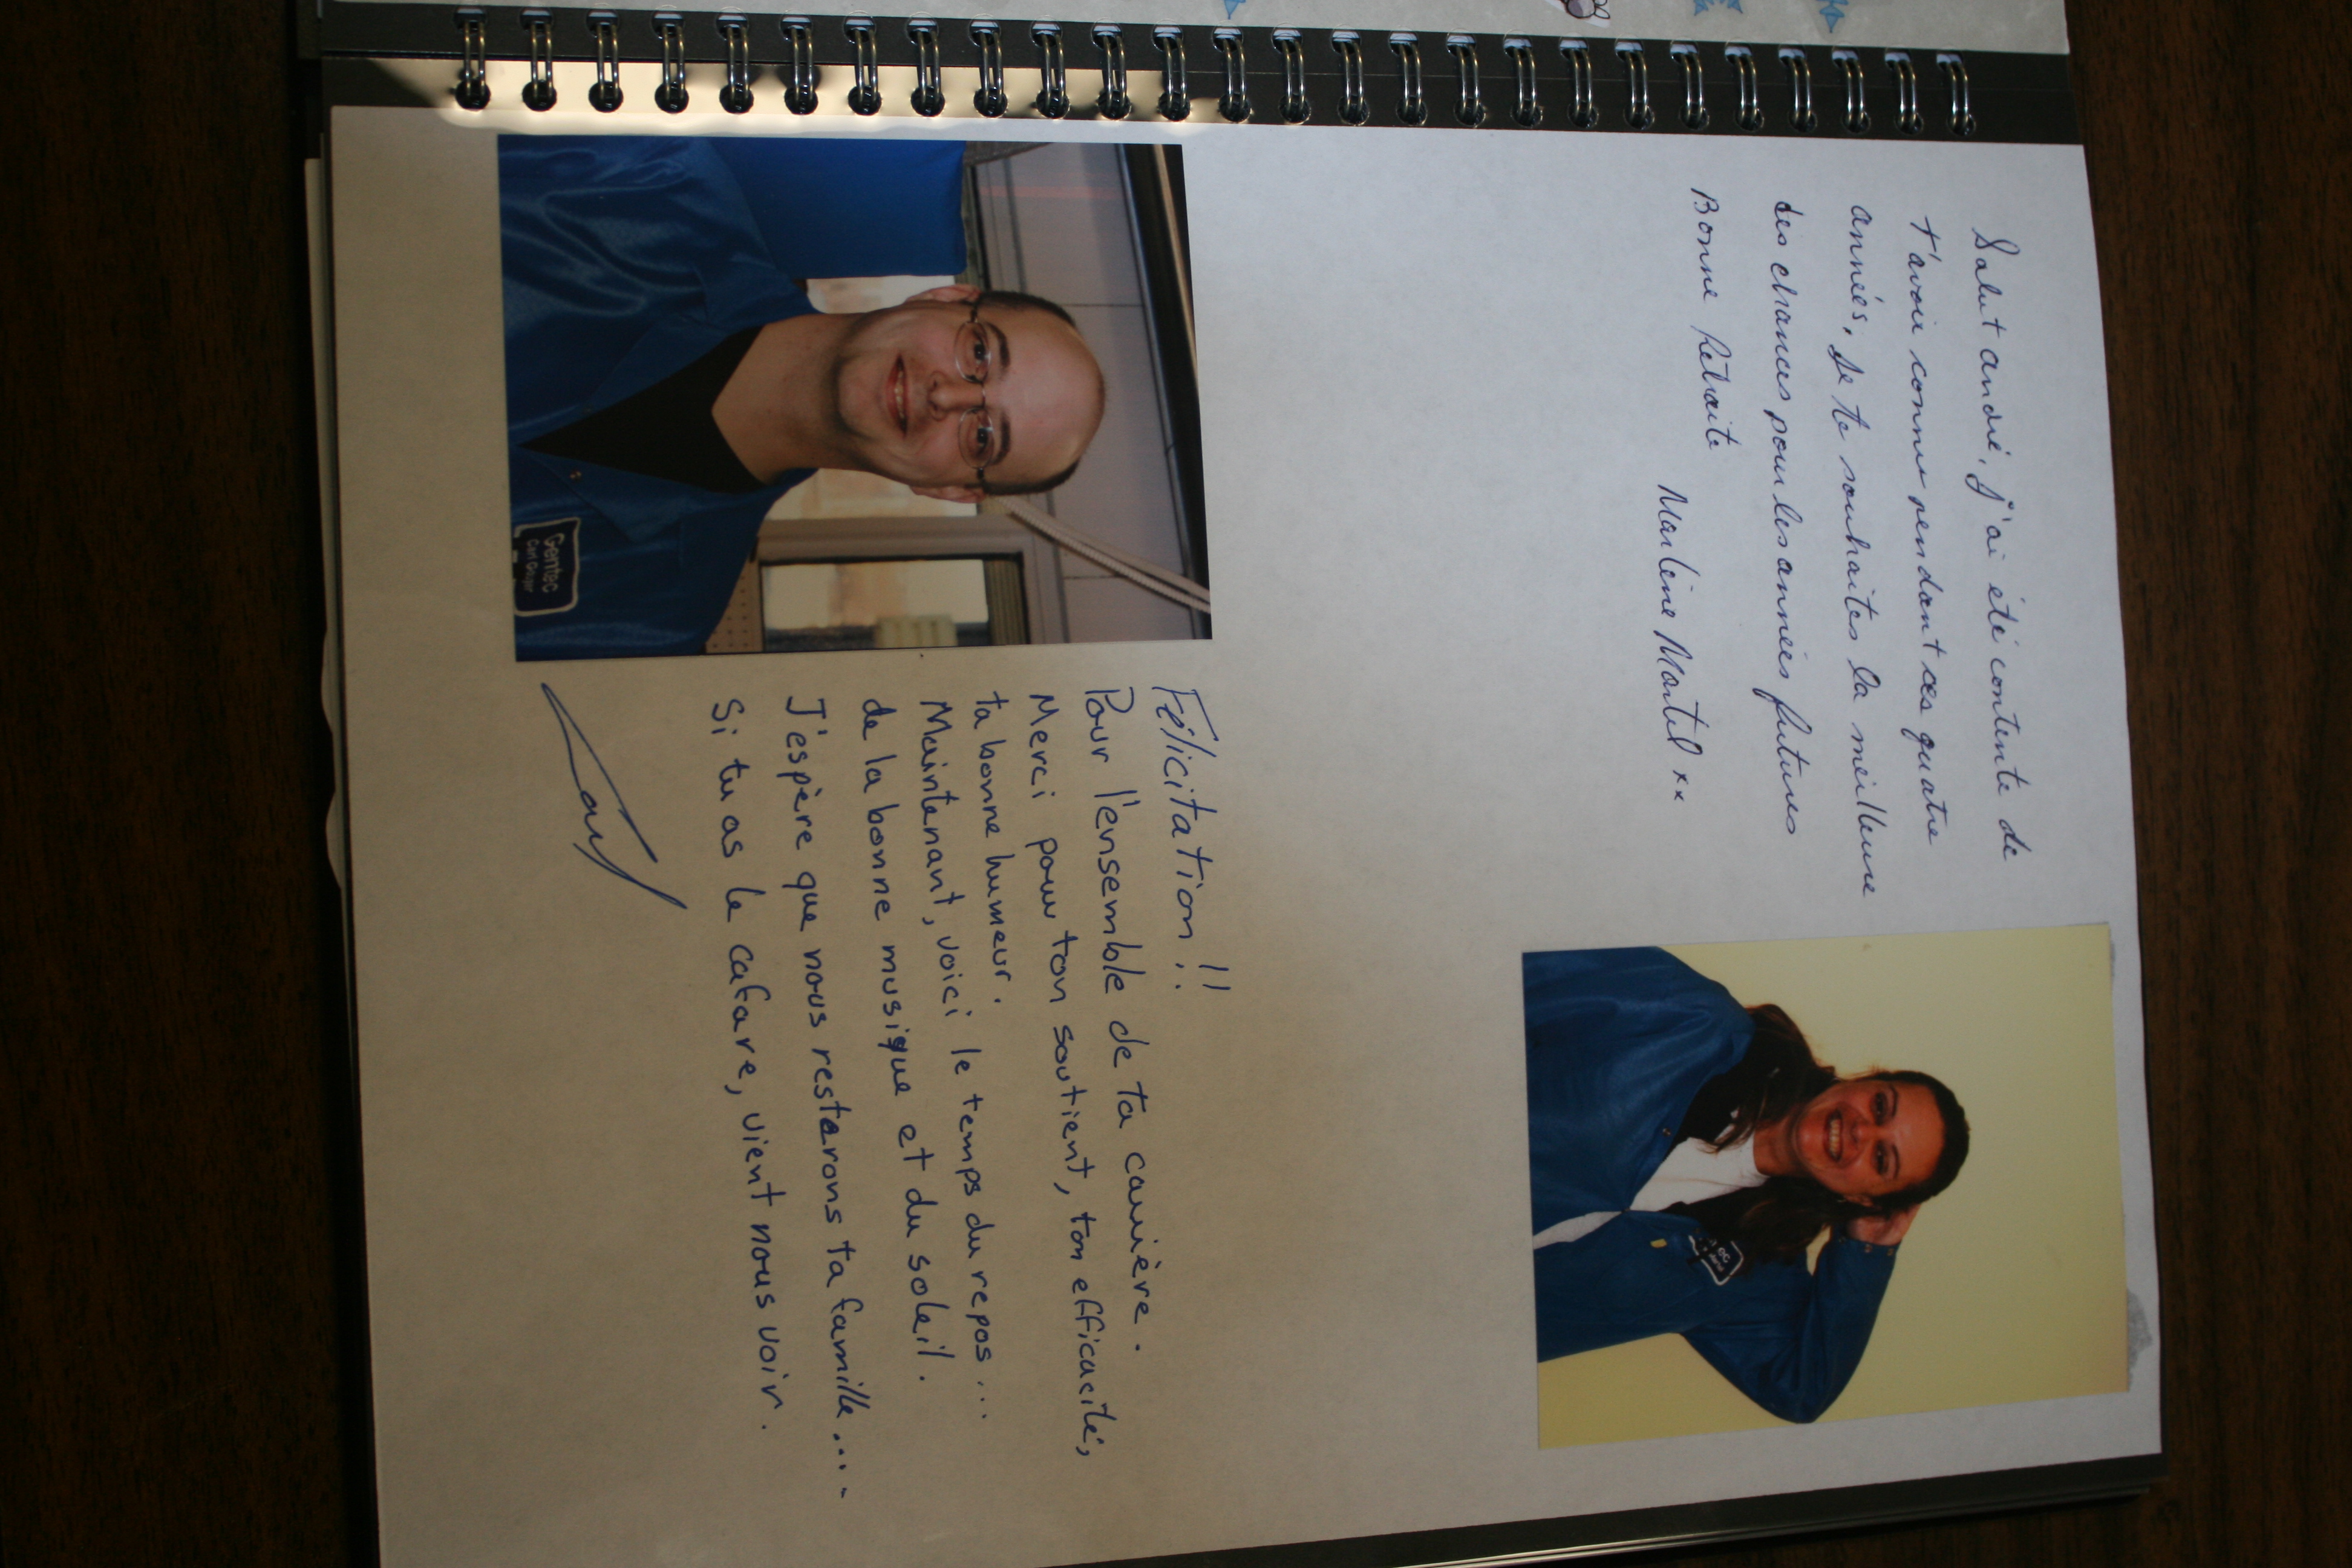 Salut andré, j'ai été contente de
t'avoir connu pendant ces quatre
années, je te souhaites la meilleure
des chances pour les années futures
Bonne Retraite
Marlène Martel xx
Félicitation !!
Pour l'ensemble de ta carrière.
Merci pour ton soutient, ton efficacité,
ta bonne humeur.
Maintenant, voici le temps du repos...
de la bonne musique et du soleil.
J'espère que nous resterons ta famille....
Si tu as le cafare, vient nous voir.
Gentec
Carl